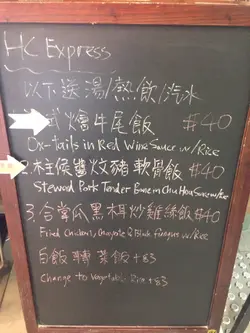 HC Express
以下送湯/熱飲/汽水
燴牛尾飯 #40
Ox-tails in Red Wine Sauce w/Rice
2.柱侯醬炆豬軟骨飯 #40
Stewed Pork Tender Bone in Chu Hou Sauce w/Rice
3.合掌瓜黑木耳炒雞絲飯 #40
Fried Chicken, Chayote & Black fungus w/Rice
白飯轉菜飯+$3
Change to Vegetable Rice +$3